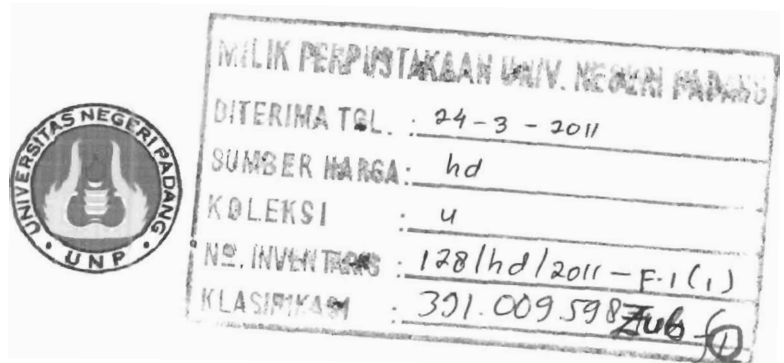 UNIVERSITAS NEGERI PADANG
• UNP •
MILIK PERPUSTAKAAN UNIV. NEGERI PADANG
DITERIMA TGL. : 24-3-2011
SUMBER HARGA : hd
KOLEKSI : u
NO. INVENTARIS : 128/hd/2011-F.1(1)
KLASIFIKASI : 391.009.598 Zub (1)